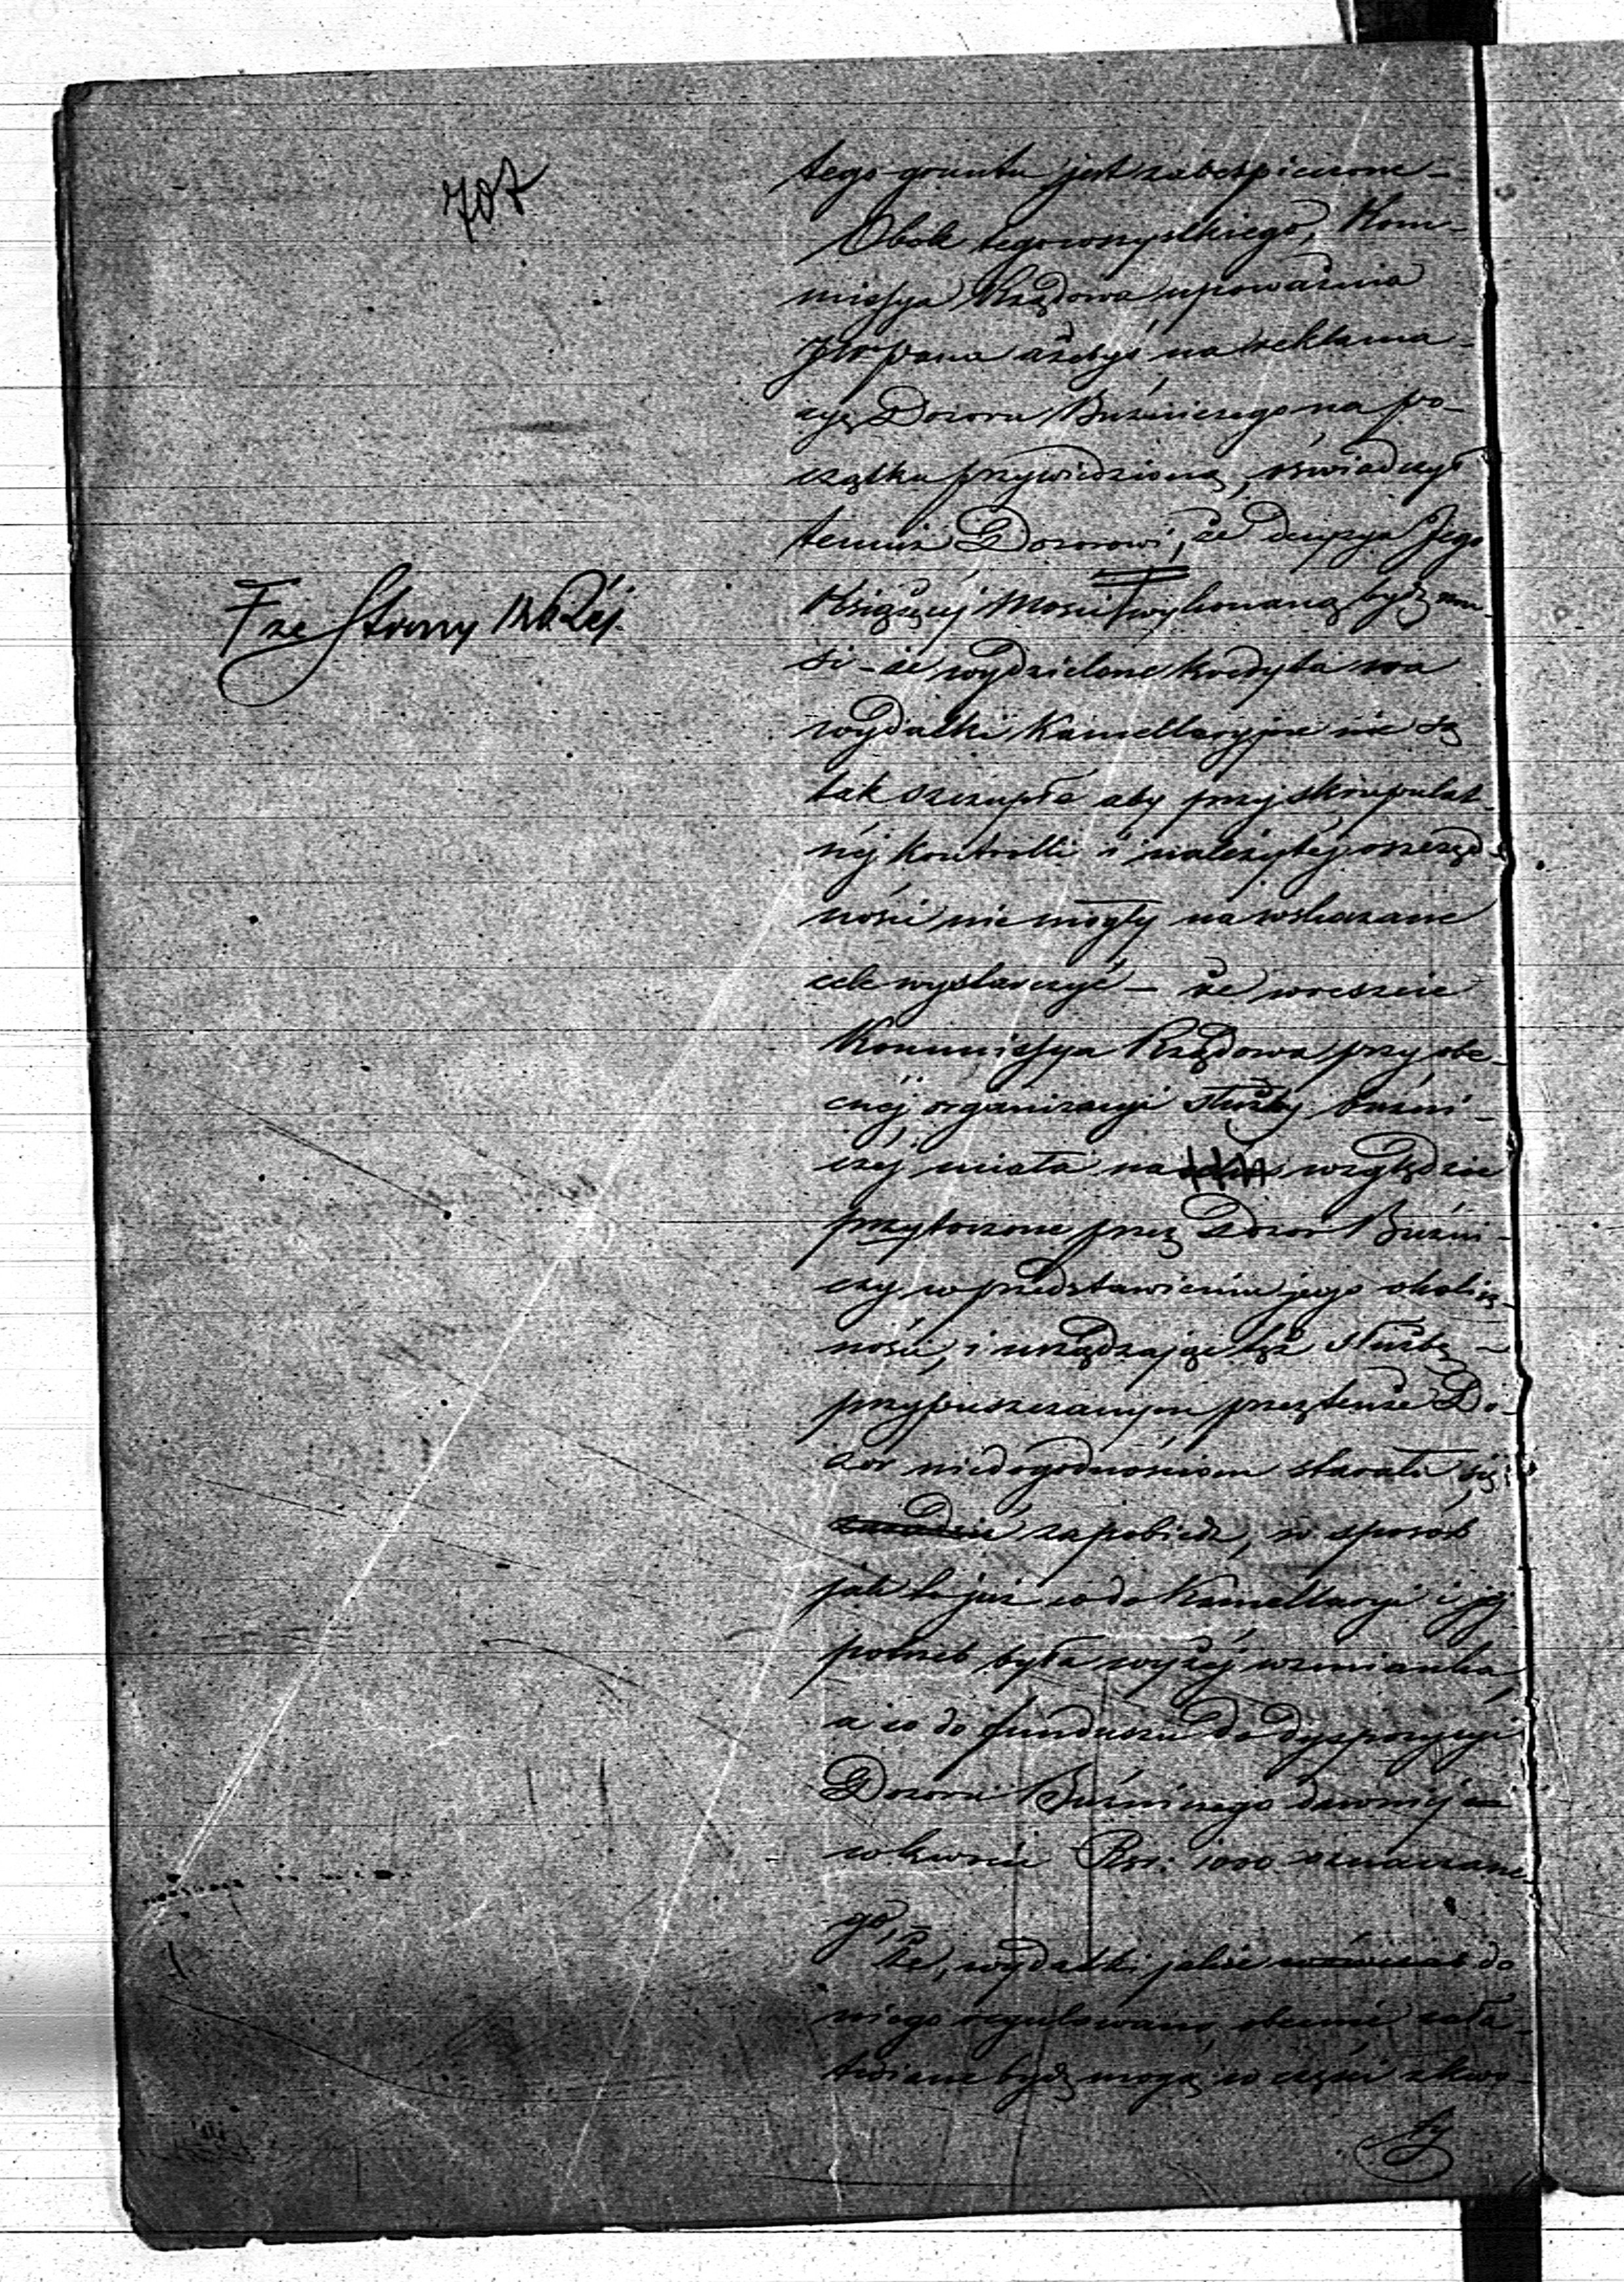 707
tego gruntu jest zabespieczone –
Obok tego wszystkiego, Kom-
missya Rządowa upoważnia
JWPana ażebyś na reklama-
cyę Dozoru Bużniczego na po-
czątku przywiedzioną, oświadczył
temuż Dozorowi, że decyzya Jego
Książęcej Mości wykonaną bydź mu-
że Strony
si – że wydzielone kredyta na
wydatki Kancellaryjne nie są
tak szczupłe aby przy skrupulat-
néj kontrolli i należytéj oszczęd-
ności nie mogły na wskazane
cele wystarczyć – że wreszcie
Kommissya Rządowa przy obe-
cnéj organizacyi służby bużni-
czéj miała na względzie
przytoczone przez Dozór Bużni-
czy w przedstawieniu jego okolicz-
ności, i urządzając tęż służbę –
przypuszczanym przez tenże Do-
zór niedogodnościom starała się
zapobiedz, w sposób
jak to już co do Kancellaryi i jéj
potrzeb była wyżéj wzmianka,
a co do funduszu do dyspozycyi
Dozoru Bużniczego dawniéj
w kwocie Rsr: 1000 oznaczane-
go,
Że, wydatki jakie wówczas do
niego regulowano, obecnie zała-
twiane bydź mogą w części z kwo-
ty